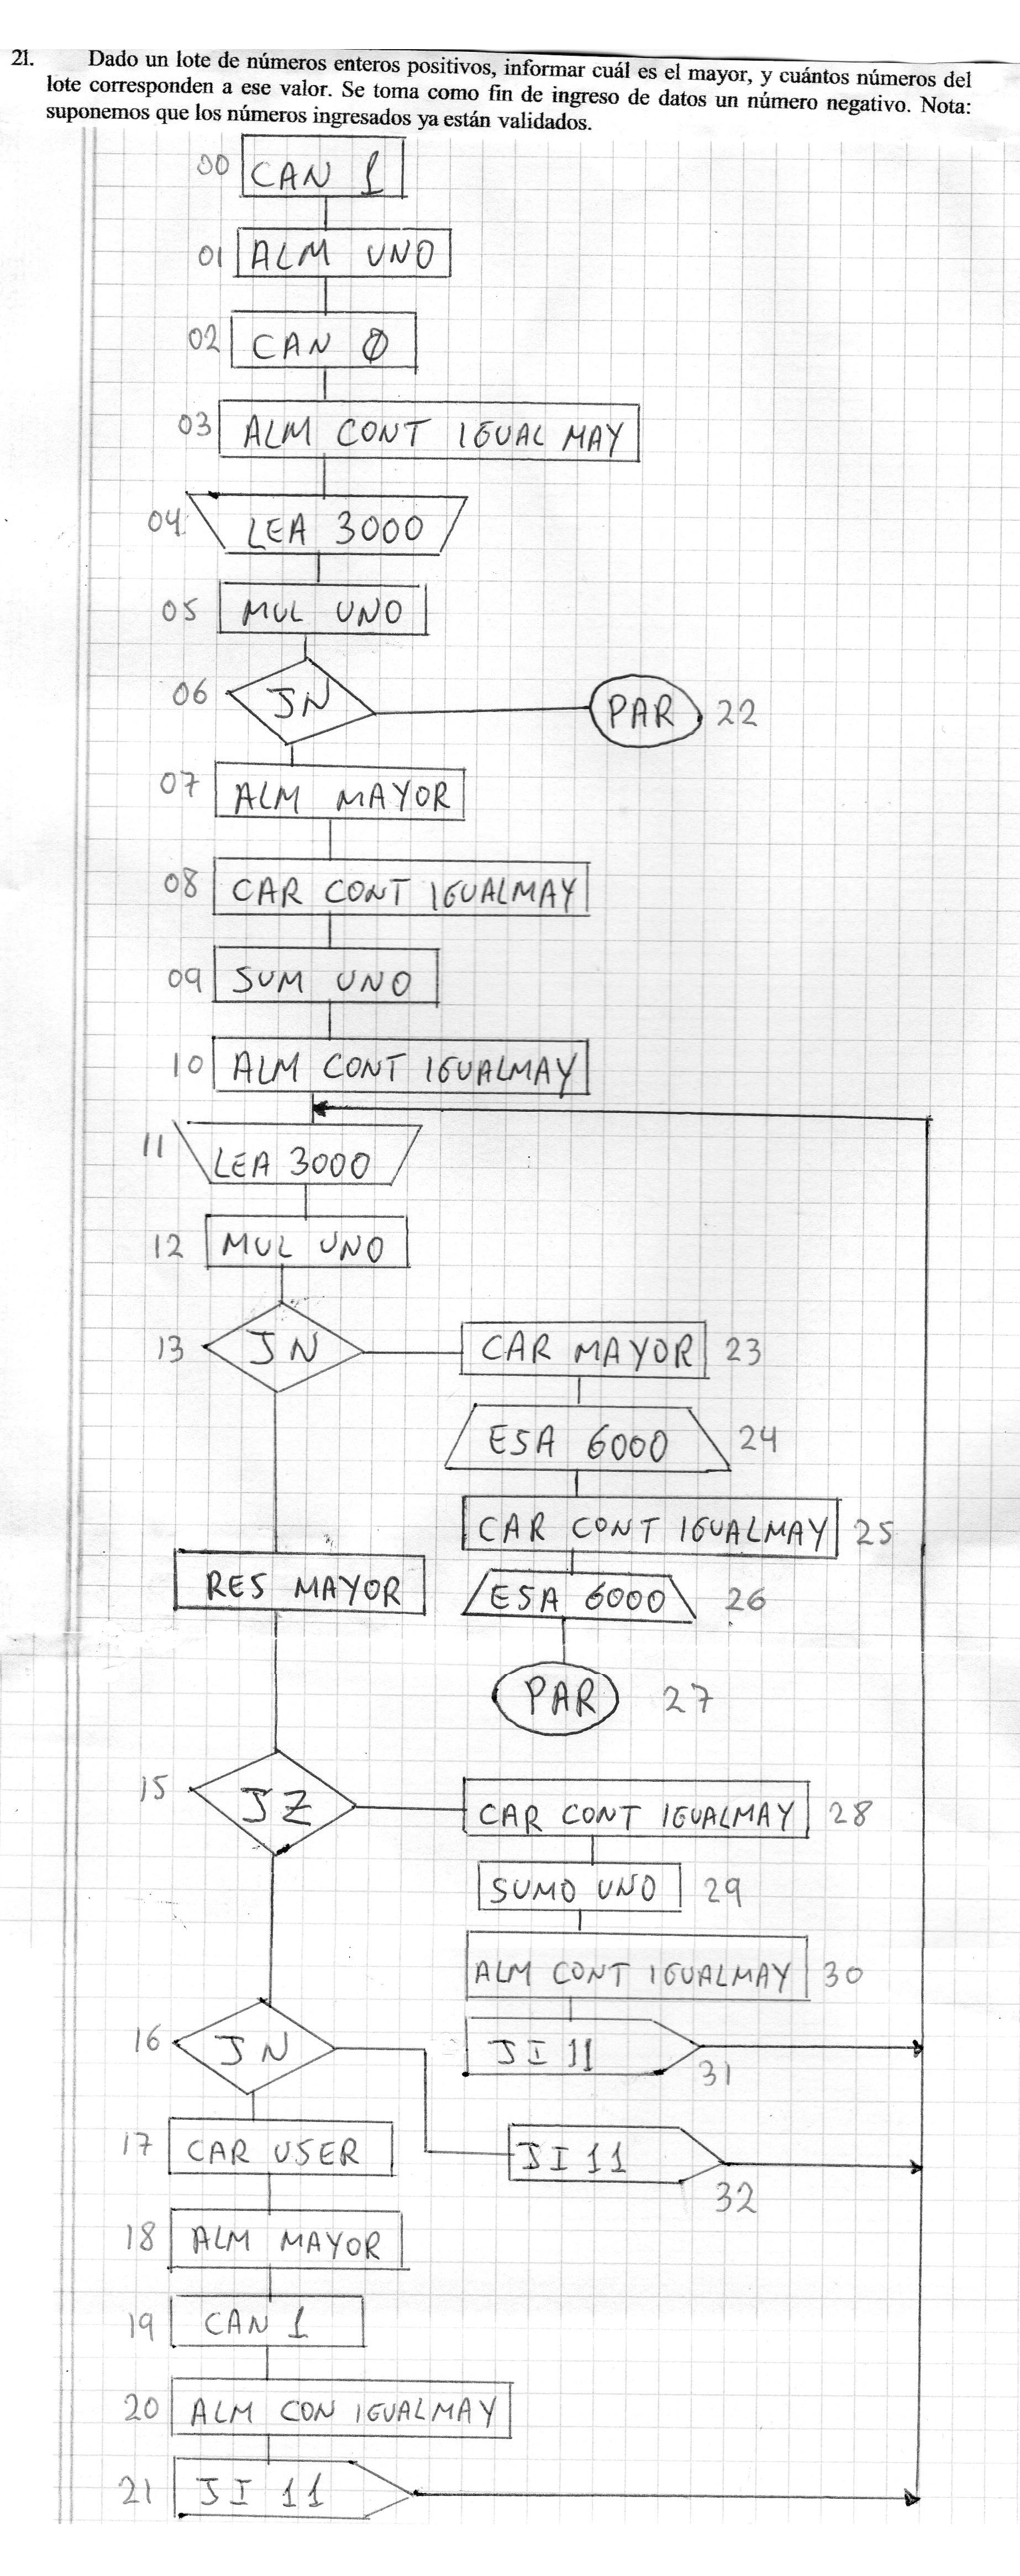 21. Dado un lote de números enteros positivos, informar cuál es el mayor, y cuántos números del
lote corresponden a ese valor. Se toma como fin de ingreso de datos un número negativo. Nota:
suponemos que los números ingresados ya están validados.
00 CAN 1
01 ALM UNO
02 CAN 0
03 ALM CONT IGUAL MAY
04 LEA 3000
05 MUL UNO
06 JN PAR 22
07 ALM MAYOR
08 CAR CONT IGUALMAY
09 SUM UNO
10 ALM CONT IGUALMAY
11 LEA 3000
12 MUL UNO
13 JN CAR MAYOR 23
ESA 6000 24
CAR CONT IGUALMAY 25
RES MAYOR ESA 6000 26
PAR 27
15 JZ CAR CONT IGUALMAY 28
SUMO UNO 29
ALM CONT IGUALMAY 30
16 JN JI 11 31
17 CAR USER JI 11 32
18 ALM MAYOR
19 CAN 1
20 ALM CON IGUALMAY
21 JI 11